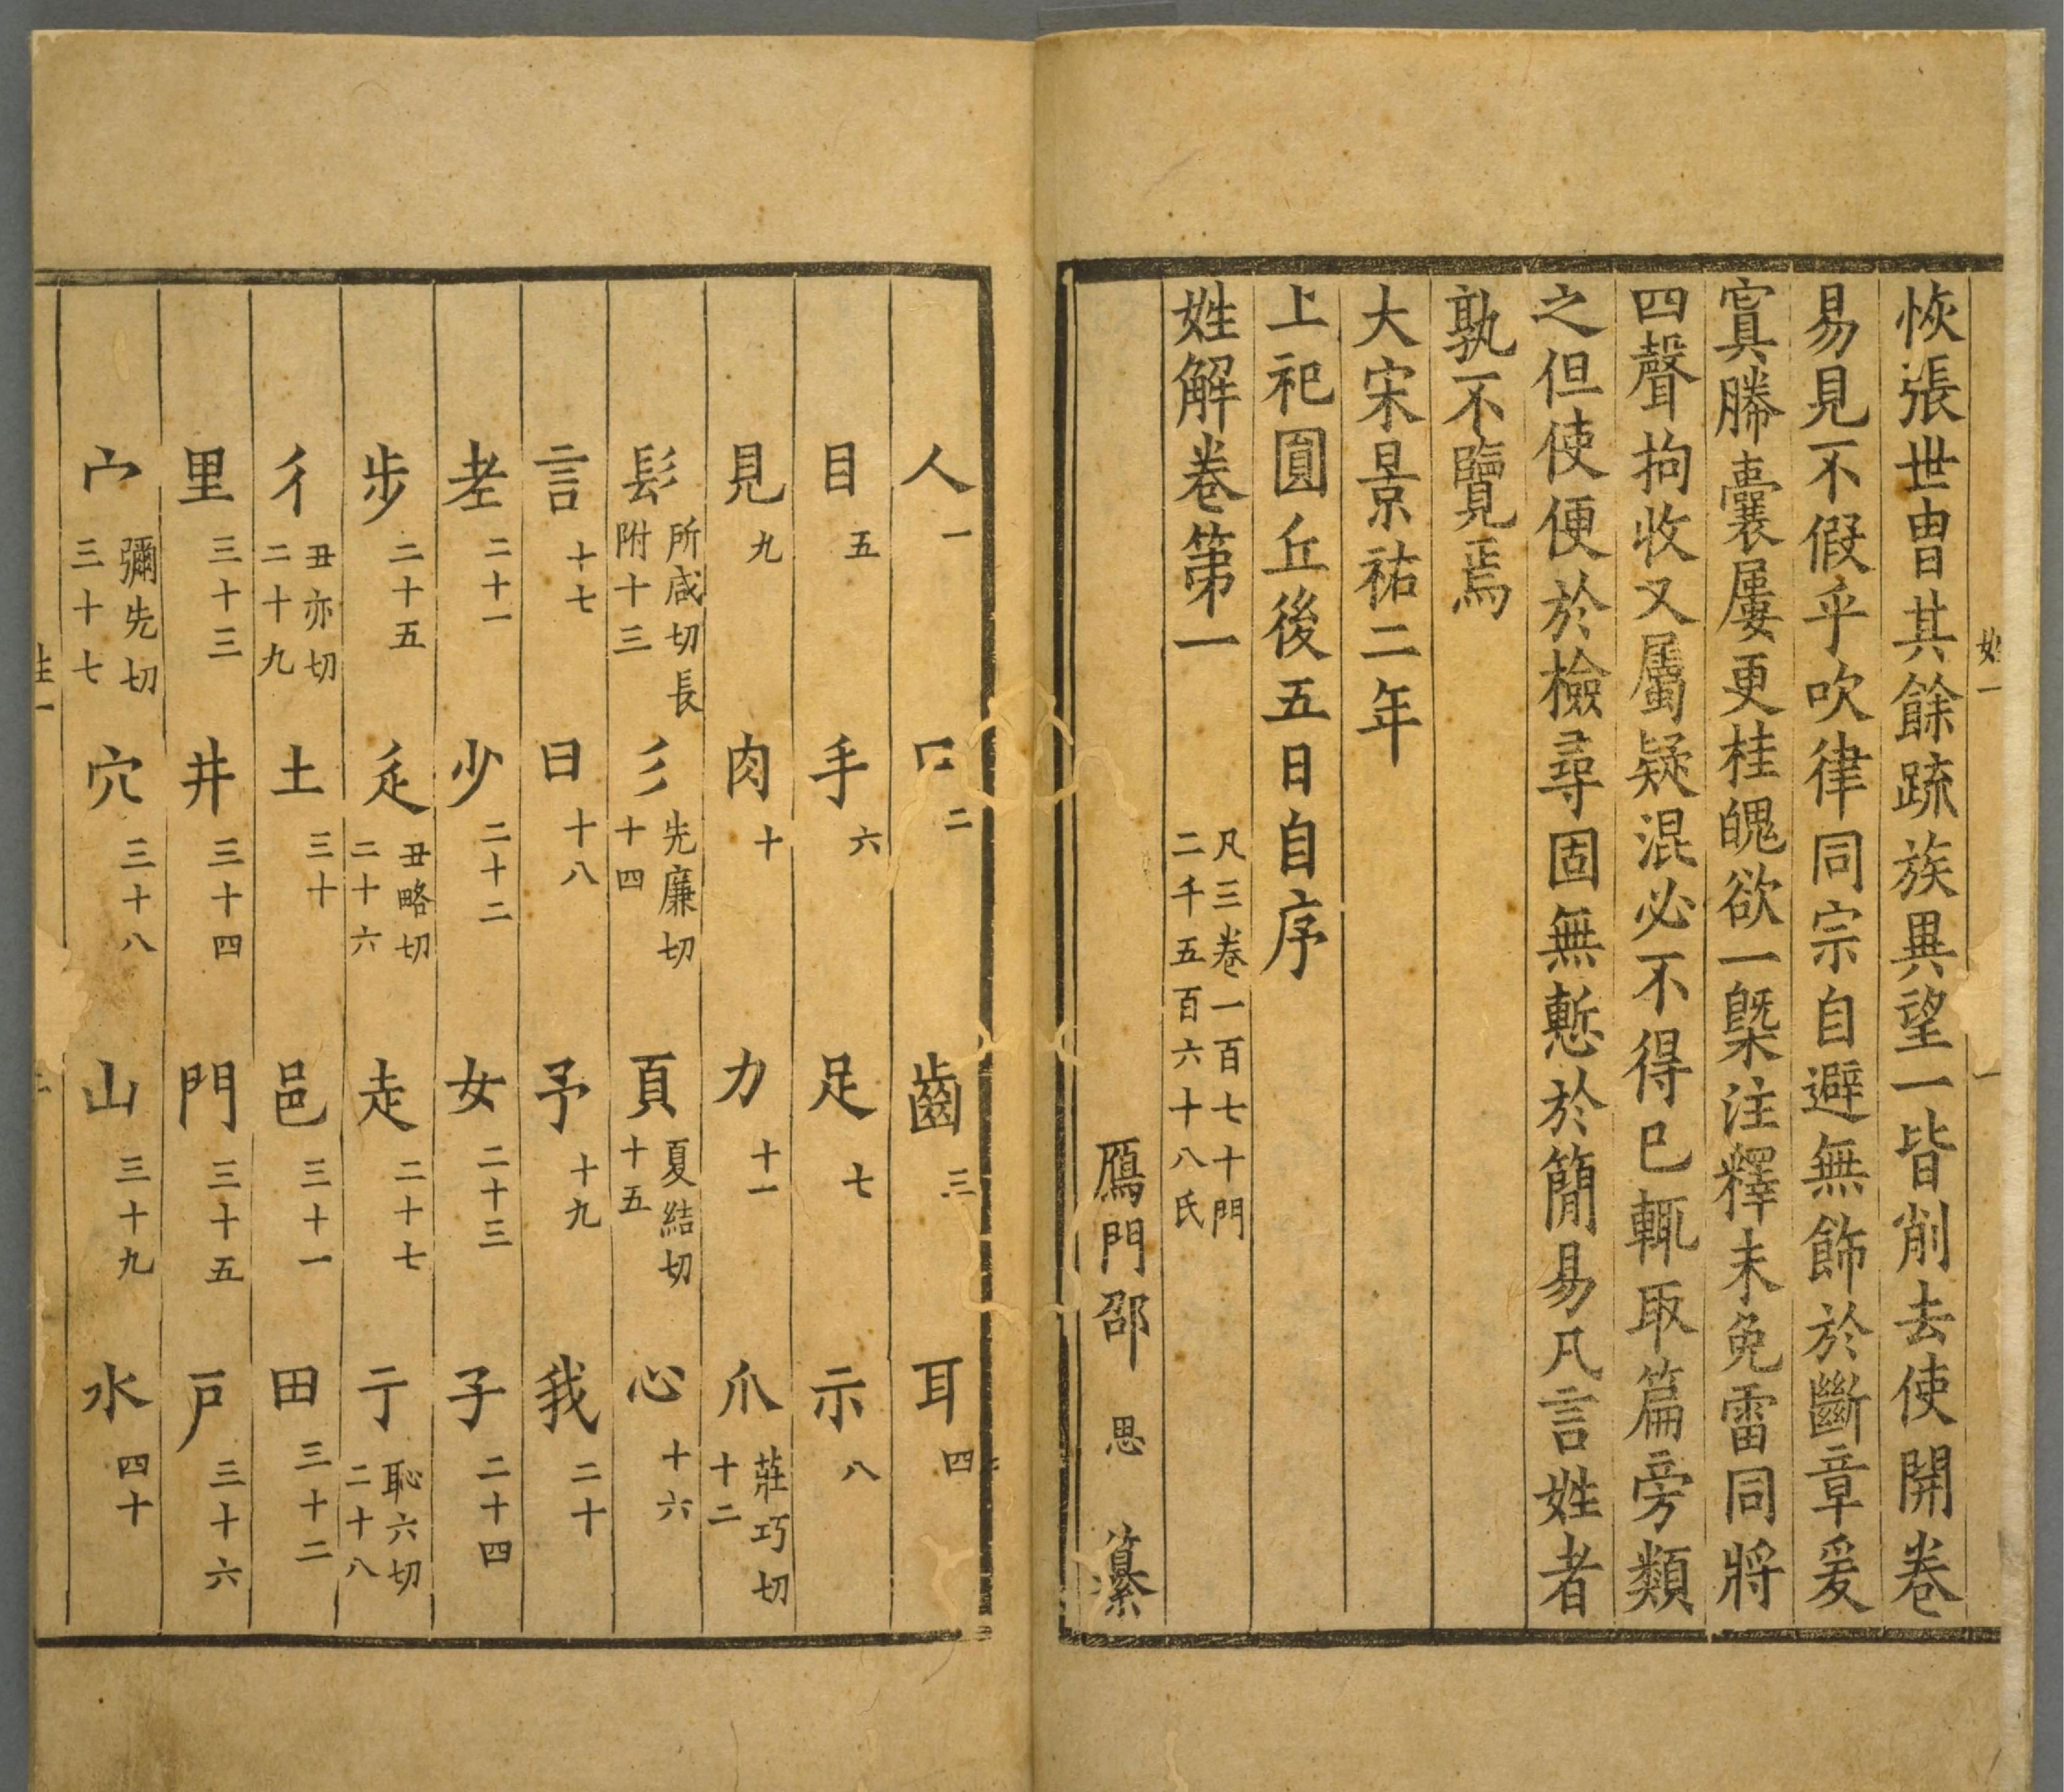 恢張世冑其餘䟽族異望一皆削去使開卷
易見不假乎吹律同宗自避無飾於斷章爰
寘縢囊屢更桂魄欲一槩注釋未免雷同將
四聲拘收又屬疑混必不得已輒取篇旁類
之但使便於檢尋固無慙於簡易凡言姓者
孰不覽焉
大宋景祐二年
上祀圓丘後五日自序
姓解卷第一 凡三卷一百七十門二千五百六十八氏
鴈門邵 思 纂
人一 口二 齒三 耳四
目五 手六 足七 示八
見九 肉十 力十一 爪莊巧切十二
髟所咸切長附十三 彡先廉切十四 頁夏結切十五 心十六
言十七 曰十八 予十九 我二十
老二十一 少二十二 女二十三 子二十四
步二十五 辵丑略切二十六 走二十七 亍恥六切二十八
彳丑亦切二十九 土三十 邑三十一 田三十二
里三十三 井三十四 門三十五 戶三十六
宀彌先切三十七 穴三十八 山三十九 水四十